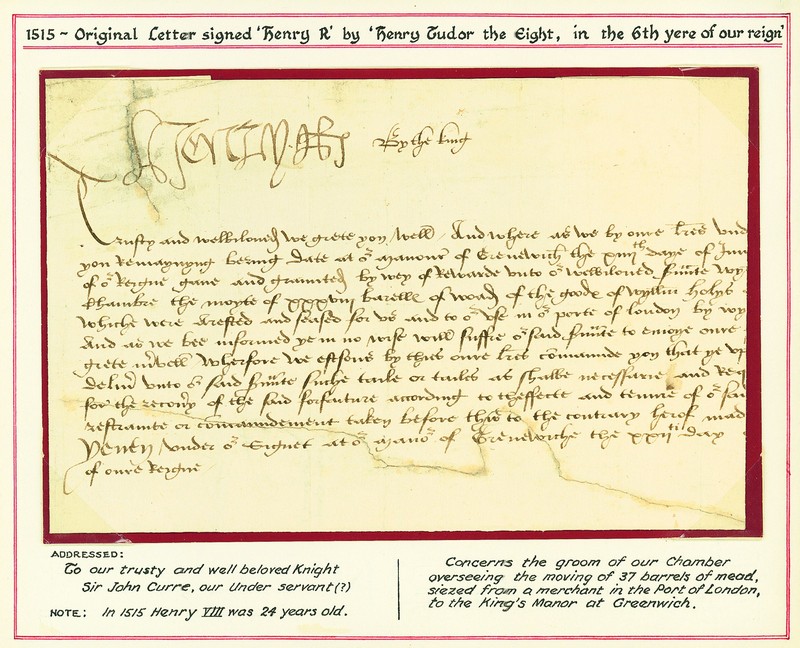 1515 ~ Original Letter signed 'Henry R' by 'Henry Tudor the Eight, in the 6th yere of our reign'
Henry R By the king
Trusty and welbiloved we grete you well / And where as we by oure lres und
you Remaynyng bering date at or manour of Grenewich the xiiiith daye of
of or Reigne gave and graunted by wey of Rewarde unto or welbiloved svnte
Chambre the moyte of xxxvii barelle of woad of the goode of Wyllm
whiche were arested and seased for us and to or use in or porte of london by
And as we bee informed ye in no wise will suffre or said svnte to enioye oure
grete mvell Wherfore we eftsons by thies oure lres comaunde you that ye
delivr unto or said svnte suche taile or tailes as shalbe necessarie and Req
for the recovry of the said forfaiture according to theffecte and tenure of or sai
restrainte or comaundement taken before this to the contrary herof mad
Yeven under or Signet at or manor of Grenewiche the xxiiti day
of oure Reigne
ADDRESSED:
To our trusty and well beloved Knight
Sir John Curre, our Under servant (?)
NOTE: In 1515 Henry VIII was 24 years old.
Concerns the groom of our Chamber
overseeing the moving of 37 barrels of mead,
siezed from a merchant in the Port of London,
to the King's Manor at Greenwich.